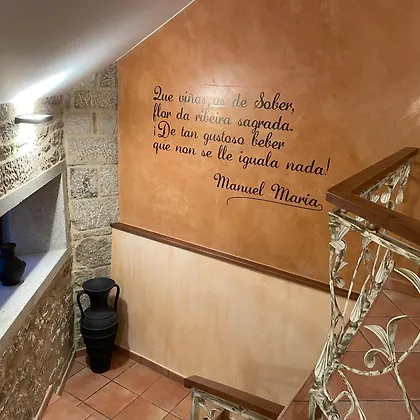 Que viños os de Sober,
flor da ribeira sagrada.
¡De tan gustoso beber
que non se lle iguala nada!
Manuel María